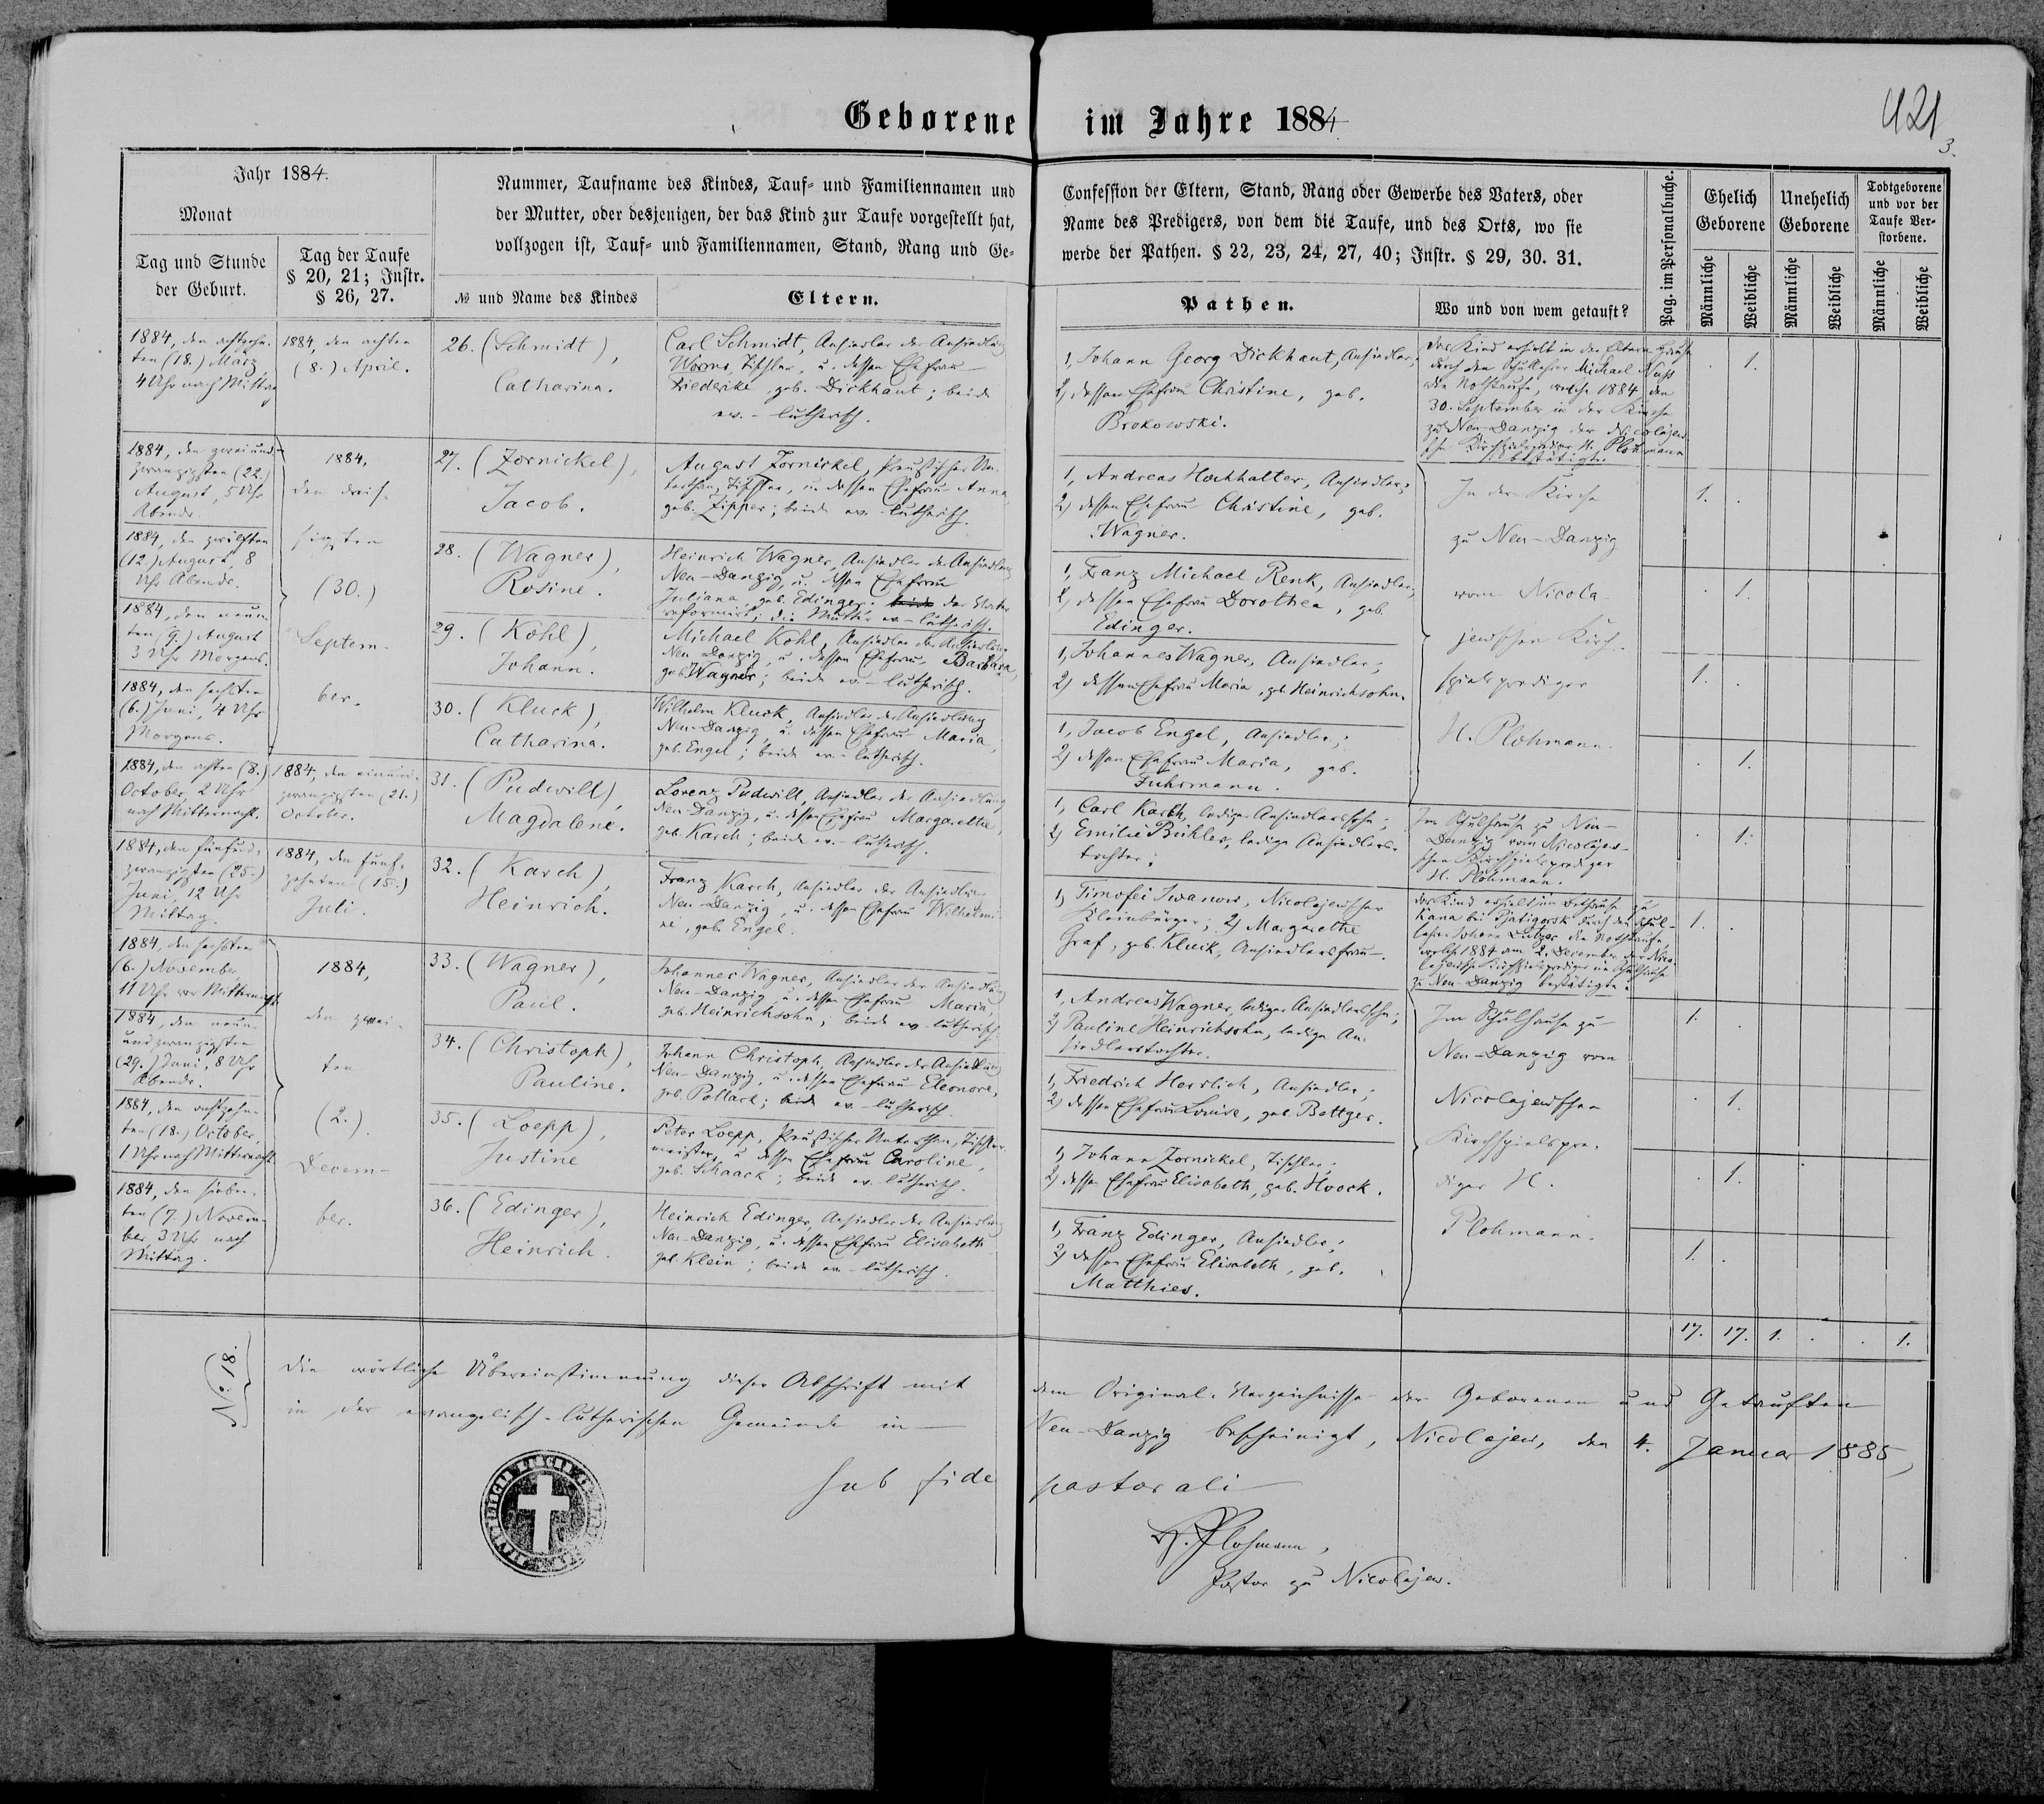 Geborene im Jahre 1884
421
3.
Jahr 1884.
Monat
Tag und Stunde
der Geburt.
Tag der Taufe
§ 20, 21; Instr.
§ 26, 27.
Nummer, Taufname des Kindes, Tauf- und Familiennamen und
der Mutter, oder desjenigen, der das Kind zur Taufe vorgestellt hat,
vollzogen ist, Tauf- und Familiennamen, Stand, Rang und Ge-
№ und Name des Kindes
Eltern.
Confession der Eltern, Stand, Rang oder Gewerbe des Vaters, oder
Name des Predigers, von dem die Taufe, und des Orts, wo sie
werde der Pathen. § 22, 23, 24, 27, 40; Instr. § 29, 30. 31.
Pathen.
Wo und von wem getauft?
Pag. im Personalbuche.
Ehelich
Geborene
Unehelich
Geborene
Todtgeborene
und vor der
Taufe Ver-
storbene.
Männliche
Weibliche
Männliche
Weibliche
Männliche
Weibliche
1884, den achtzehn-
ten (18.) März,
4 Uhr nach Mittag
1884, den achten
(8.) April.
26. (Schmidt),
Catharina.
Carl Schmidt, Ansiedler der Ansiedlung
Worms, Tischler, u. dessen Ehefrau
Friederike, geb. Dickhaut; beide
ev.-lutherisch.
1, Johann Georg Dickhaut, Ansiedler,
2) dessen Ehefrau Christine, geb.
Brokowski.
Das Kind erhielt in der Eltern Hause
durch den Schullehrer Michael
die Nothtaufe, welche 1884 den
30. September in der Kirche
zu Neu-Danzig der Nicolajew-
sche Kirchspielsprediger H. Plohmann
bestätigte.
1.
1884, den zweiund-
zwanzigsten (22.)
August, 5 Uhr
Abends.
1884,
den dreis-
sigsten
(30.)
Septem-
ber.
27. (Zornickel),
Jacob.
August Zornickel, Preußischer Un-
terthan, Tischler, u. dessen Ehefrau Anna,
geb. Zipper; beide ev.-lutherisch.
1, Andreas Hochhalter, Ansiedler;
2) dessen Ehefrau Christine, geb.
Wagner.
In der Kirche
zu Neu-Danzig
vom Nicola-
jewschen Kirch-
spielsprediger
H. Plohmann.
1.
1884, den zwölften
(12.) August, 8
Uhr Abends.
28. (Wagner),
Rosine.
Heinrich Wagner, Ansiedler der Ansiedlung
Neu-Danzig, u. dessen Ehefrau
Juliana, geb. Edinger; beide der Vater
reformirt, die Mutter ev.-lutherisch.
1, Franz Michael Renk, Ansiedler,
2, dessen Ehefrau Dorothea, geb.
Edinger.
1.
1884, den neun-
ten (9.) August
3 Uhr Morgens.
29. (Kohl),
Johann.
Michael Kohl, Ansiedler der Ansiedlung
Neu-Danzig, u. dessen Ehefrau Barbara,
geb. Wagner; beide ev.-lutherisch.
1, Johannes Wagner, Ansiedler;
2) dessen Ehefrau Maria, geb. Heinrichsohn.
1.
1884, den sechsten
(6.) Juni, 4 Uhr
Morgens.
30. (Kluck),
Catharina.
Wilhelm Kluck, Ansiedler der Ansiedlung
Neu-Danzig, u. dessen Ehefrau Maria,
geb. Engel; beide ev.-lutherisch.
1, Jacob Engel, Ansiedler;
2) dessen Ehefrau Maria, geb.
Fuhrmann.
1.
1884, den achten (8.)
October, 2 Uhr
nach Mitternacht.
1884, den einund-
zwanzigsten (21.)
October.
31. (Pudwill),
Magdalene.
Lorenz Pudwill, Ansiedler der Ansiedlung
Neu-Danzig, u. dessen Ehefrau Margarethe,
geb. Karch; beide ev.-lutherisch.
1, Carl Karch, lediger Ansiedlerssohn;
2) Emilie Bühler, ledige Ansiedlers-
tochter;
Im Schulhause zu Neu-
Danzig vom Nicolajew-
schen Kirchspielsprediger
H. Plohmann.
1.
1884, den fünfund-
zwanzigsten (25.)
Juni, 12 Uhr
Mittag.
1884, den funf-
zehnten (15.)
Juli.
32. (Karch),
Heinrich.
Franz Karch, Ansiedler der Ansiedlung
Neu-Danzig, u. dessen Ehefrau Wilhelmi-
ne, geb. Engel.
1, Timofei Iwanow, Nicolajewscher
Kleinbürger; 2) Margarethe
Graf, geb. Kluck, Ansiedlersfrau.
Das Kind erhielt im Bethause zu
Kana bei Pjatigorsk durch den Schul-
lehrer Johann Lutzer die Nothtaufe,
welche 1884 am 2. December der Nico-
lajewsche Kirchspielsprediger im Schulhause
zu Neu-Danzig bestätigte.
1.
1884, den sechsten
(6.) November,
11 Uhr vor Mitternacht.
1884,
den zwei-
ten
(2.)
Decem-
ber.
33. (Wagner),
Paul.
Johannes Wagner, Ansiedler der Ansiedlung
Neu-Danzig, u. dessen Ehefrau Maria,
geb. Heinrichsohn; beide ev.-lutherisch.
1, Andreas Wagner, lediger Ansiedlerssohn;
2) Pauline Heinrichsohn, ledige An-
siedlerstochter.
Im Schulhause zu
Neu-Danzig vom
Nicolajewschen
Kirchspielspre-
diger H.
Plohmann.
1.
1884, den neun-
und zwanzigsten
(29.) Juni, 8 Uhr
Abends.
34. (Christoph),
Pauline.
Johann Christoph, Ansiedler der Ansiedlung
Neu-Danzig, u. dessen Ehefrau Eleonore,
geb. Pollack; beide ev.-lutherisch.
1, Friedrich Herrlich, Ansiedler;
2) dessen Ehefrau Louise, geb. Bottger.
1.
1884, den achtzehn-
ten (18.) October,
1 Uhr nach Mitternacht
35. (Loepp),
Justine
Peter Loepp, Preußischer Unterthan, Tischler-
meister, u. dessen Ehefrau Caroline,
geb. Schaack; beide ev.-lutherisch.
1, Johann Zornickel, Tischler;
2) dessen Ehefrau Elisabeth, geb. Hoock.
1.
1884, den sieben-
ten (7.) Novem-
ber, 3 Uhr nach
Mittag.
36. (Edinger),
Heinrich.
Heinrich Edinger, Ansiedler der Ansiedlung
Neu-Danzig, u. dessen Ehefrau Elisabeth
geb. Klein; beide ev.-lutherisch.
1, Franz Edinger, Ansiedler;
2) dessen Ehefrau Elisabeth, geb.
Matthies.
1.
17. 17. 1. . . 1.
No. 18.
Die wörtliche Übereinstimmung dieser Abschrift mit dem Original-Verzeichnisse der Geborenen und Getauften
in der evangelisch-lutherischen Gemeinde in Neu-Danzig bescheinigt, Nicolajew, den 4. Januar 1885,
sub fide pastorali
H. Plohmann,
Pastor zu Nicolajew.